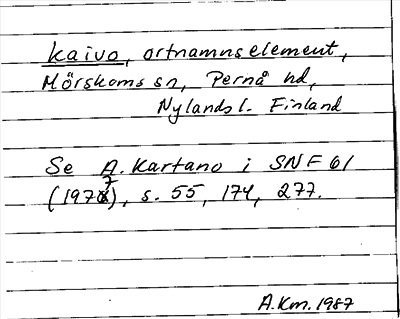 kaivo, ortnamnselement,
Mörskoms sn, Pernå hd,
Nylands l. Finland
Se A. Kartano i SNF 61
(1977), s. 55, 174, 277.
A.Km. 1987